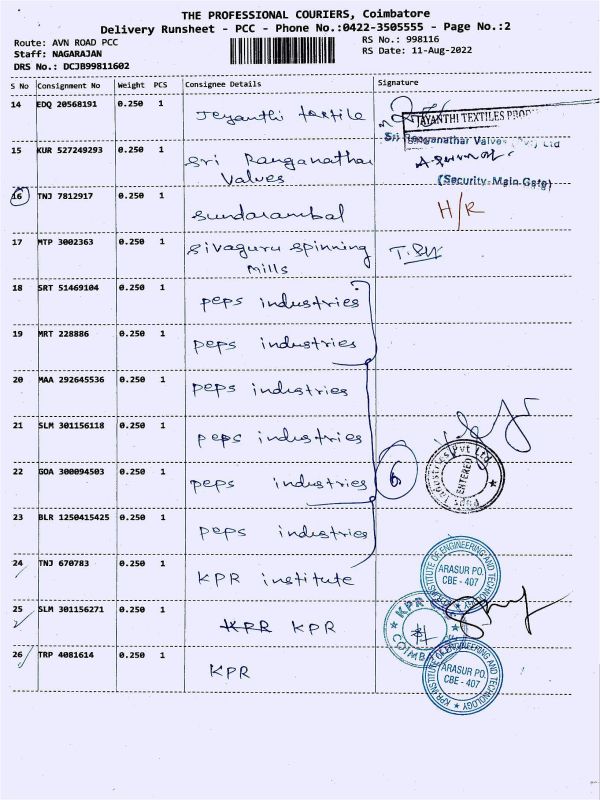 THE PROFESSIONAL COURIERS, Coimbatore
Delivery Runsheet - PCC - Phone No.:0422-3505555 - Page No.:2
Route: AVN ROAD PCC
RS No.: 998116
Staff: NAGARAJAN
RS Date: 11-Aug-2022
DRS No.: DCJB99811602
S No Consignment No Weight PCS Consignee Details Signature
14 EDQ 20568191 0.250 1 Jeyanthi textile
JAYANTHI TEXTILES
15 KUR 527249293 0.250 1 Sri Ranganathar
Valves
Sri Ranganathar Valves (Pvt) Ltd
(Security-Main Gate)
16 TNJ 7812917 0.250 1 Sundarambal H/R
17 MTP 3002363 0.250 1 Sivaguru spinning
Mills
18 SRT 51469104 0.250 1 peps industries
19 MRT 228886 0.250 1 peps industries
20 MAA 292645536 0.250 1 peps industries
21 SLM 301156118 0.250 1 peps industries
22 GOA 300094503 0.250 1 peps industries 6
Peps Industries Pvt Ltd
ENTERED
23 BLR 1250415425 0.250 1 peps industries
24 TNJ 670783 0.250 1 KPR institute
KPR INSTITUTE OF ENGINEERING AND TECHNOLOGY
ARASUR PO.
CBE - 407
25 SLM 301156271 0.250 1 KPR KPR
KPR
26 TRP 4081614 0.250 1 KPR
KPR INSTITUTE OF ENGINEERING AND TECHNOLOGY
ARASUR PO.
CBE - 407